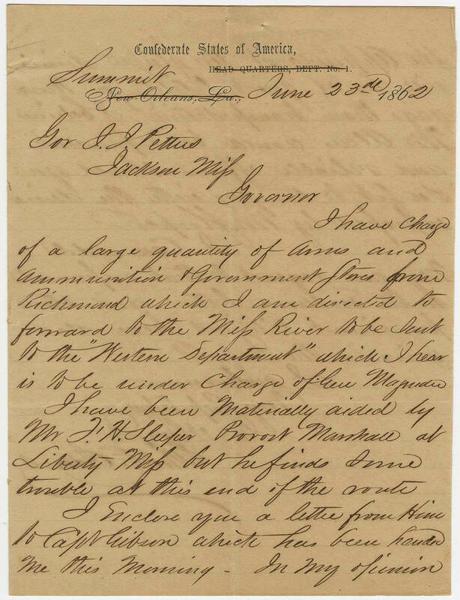 Confederate States of America,
HEAD QUARTERS, DEPT. No. 1.
Summit
New Orleans, La., June 23rd 1862
Gov J. J. Pettus
Jackson Miss
Governor
I have charge
of a large quantity of Arms and
Ammunition & Government Stores from
Richmond which I am directed to
forward to the Miss River to be sent
to the "Western Department" which I hear
is to be under Charge of Genl Magruder
I have been Materially aided by
Mr F. H. Sleeper Provost Marshall at
Liberty Miss but he finds some
trouble at this end of the route
I Enclose you a letter from Him
to Capt Gibson which has been handed
Me this Morning - In My opinion